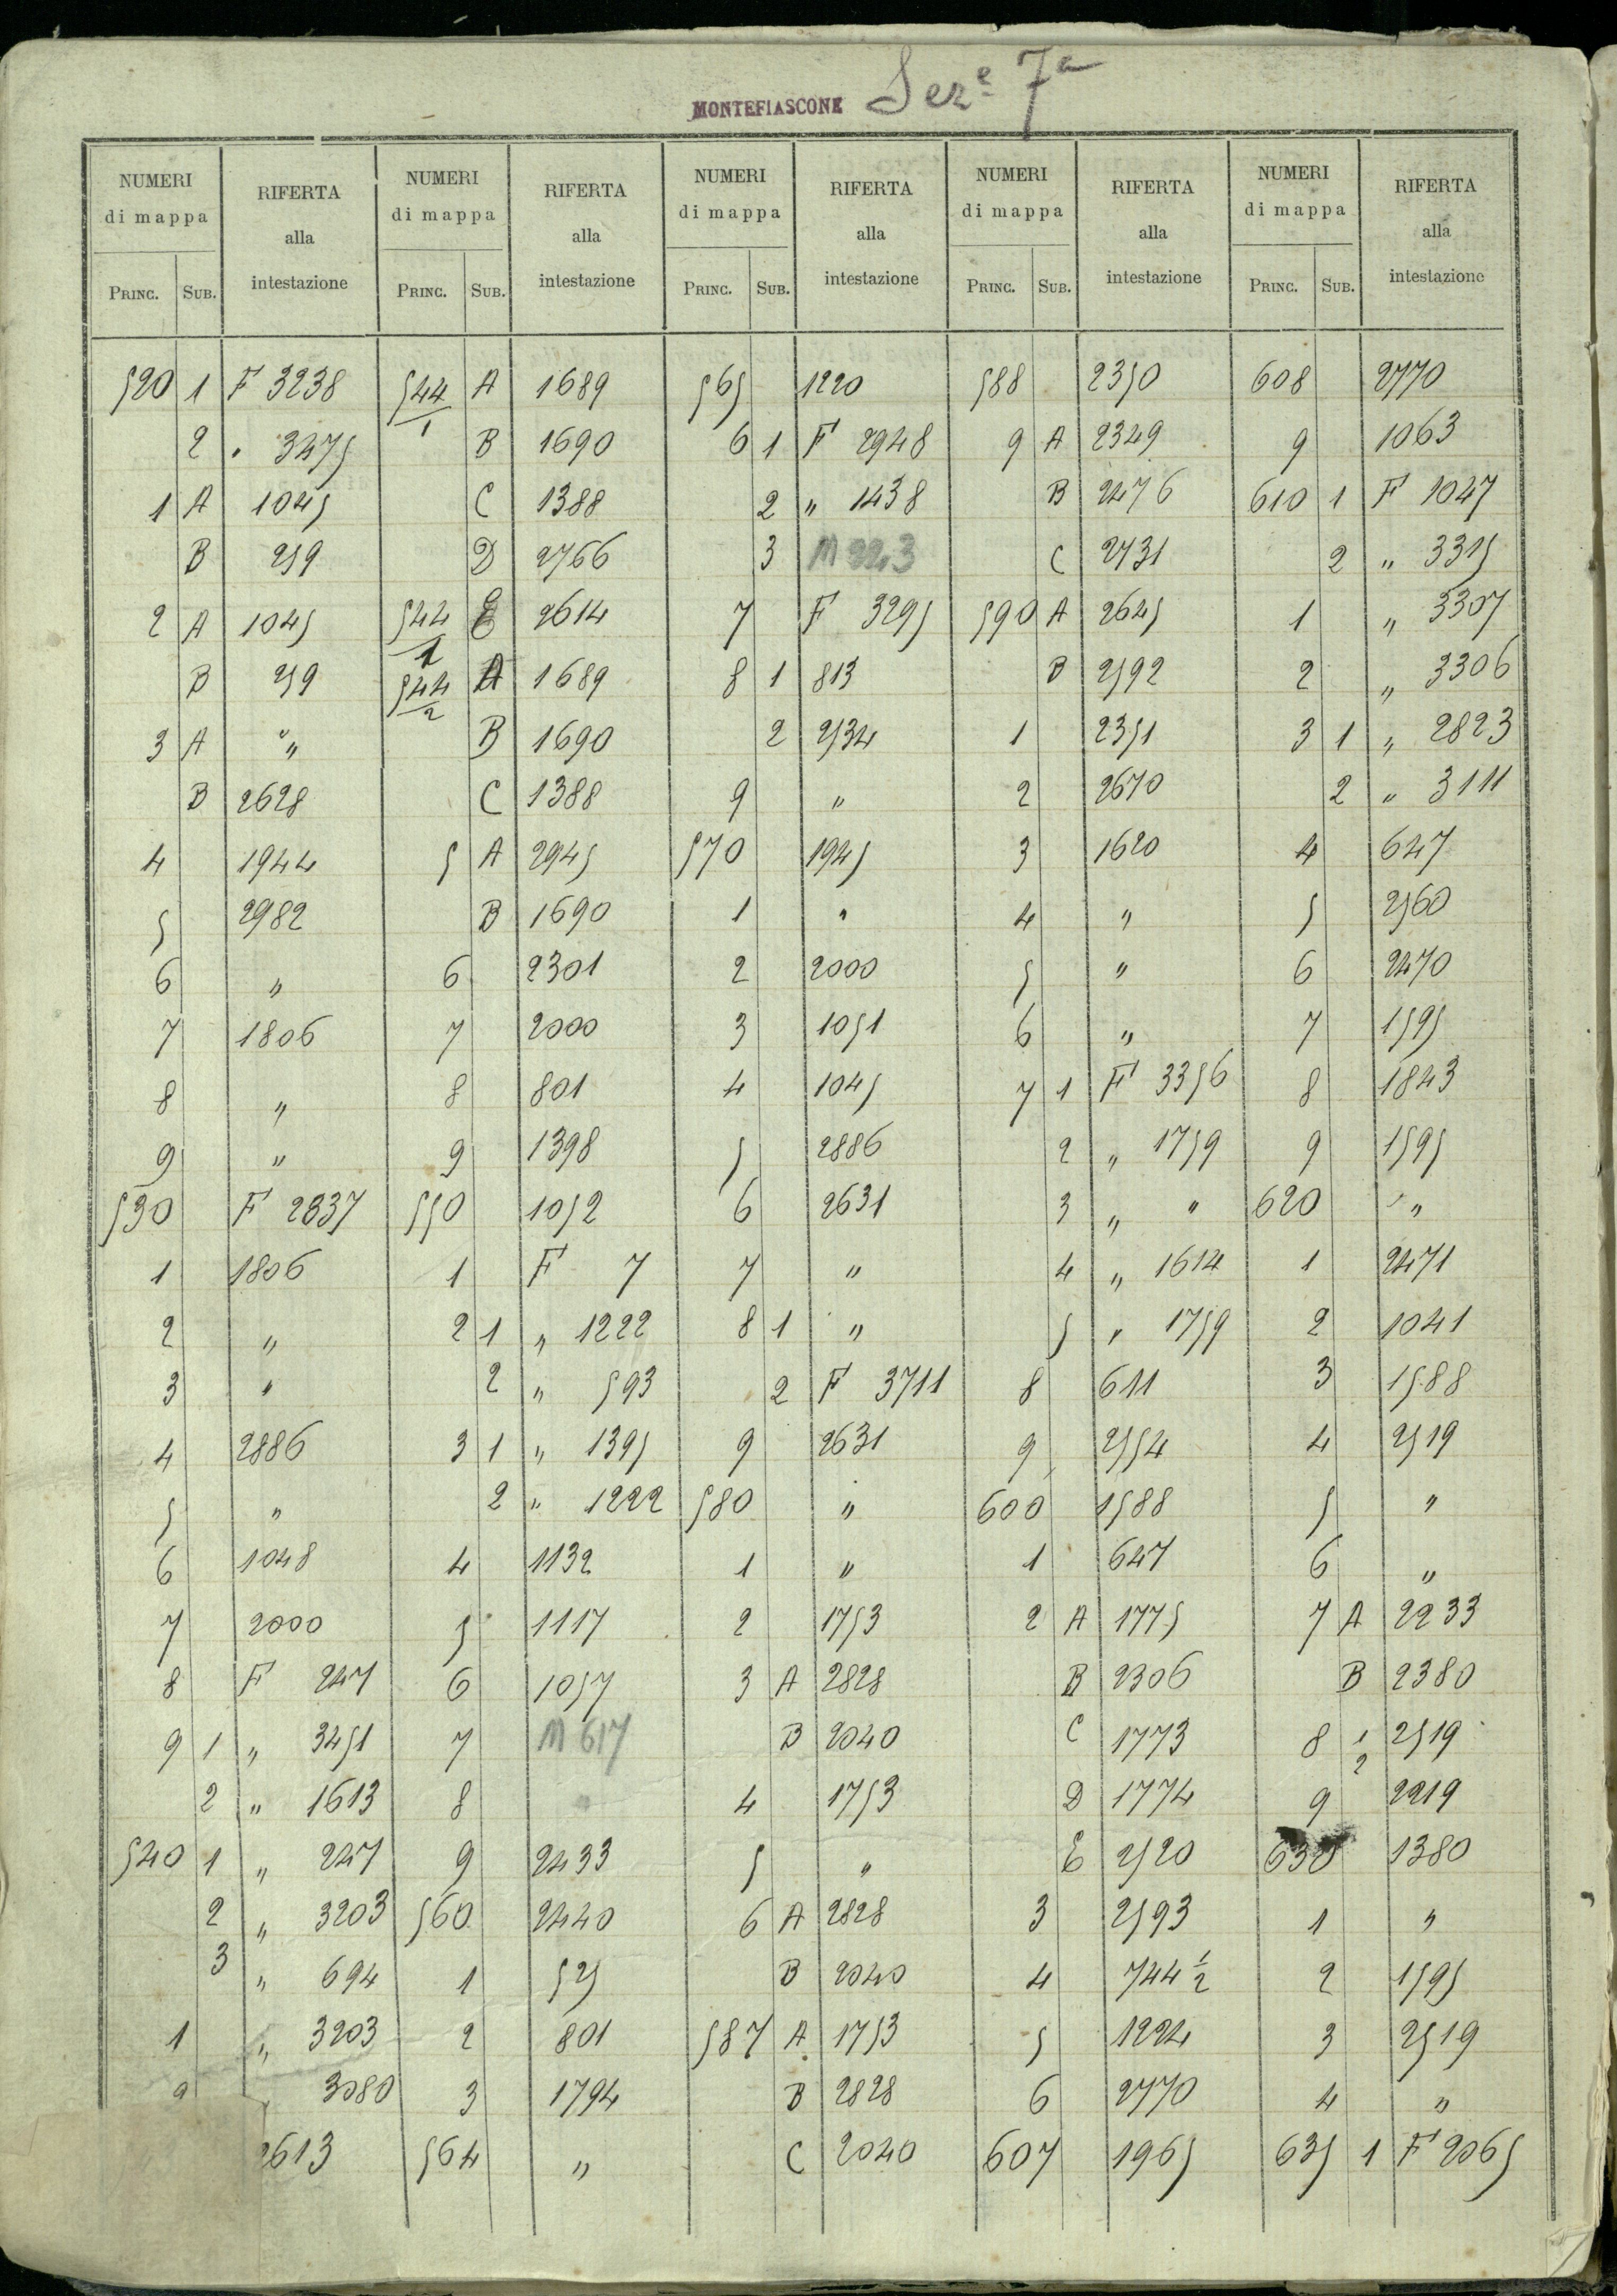 MONTEFIASCONE Serᵉ 7ª
NUMERI di mappa RIFERTA alla intestazione NUMERI di mappa RIFERTA alla intestazione NUMERI di mappa RIFERTA alla intestazione NUMERI di mappa RIFERTA alla intestazione NUMERI di mappa RIFERTA alla intestazione
PRINC. SUB. PRINC. SUB. PRINC. SUB. PRINC. SUB. PRINC. SUB.
520 1 F 3238 544/1 A 1689 565 1220 588 2350 608 2770
2 " 3475 B 1690 6 1 F 2948 9 A 2349 9 1063
1 A 1045 C 1388 2 " 1438 B 2476 610 1 F 1047
B 259 D 2766 3 M 223 C 2731 2 " 3315
2 A 1045 544/1 E 2614 7 F 3295 590 A 2645 1 " 3307
B 259 544/2 A 1689 8 1 813 B 2592 2 " 3306
3 A " B 1690 2 2534 1 2351 3 1 " 2823
B 2628 C 1388 9 " 2 2670 2 " 3111
4 1944 5 A 2945 570 1945 3 1620 4 647
5 2982 B 1690 1 " 4 " 5 2560
6 " 6 2301 2 2000 5 " 6 2470
7 1806 7 2000 3 1051 6 " 7 1595
8 " 8 801 4 1045 7 1 F 3356 8 1843
9 " 9 1398 5 2886 2 " 1759 9 1595
530 F 2837 550 1052 6 2631 3 " " 620 "
1 1806 1 F 7 7 " 4 " 1614 1 2471
2 " 2 1 " 1222 8 1 " 5 " 1759 2 1041
3 " 2 " 593 2 F 3711 8 611 3 1588
4 2886 3 1 " 1395 9 2631 9 2554 4 2519
5 " 2 " 1222 580 " 600 1588 5 "
6 1048 4 1132 1 " 1 647 6 "
7 2000 5 1117 2 1753 2 A 1775 7 A 2233
8 F 247 6 1057 3 A 2828 B 2306 B 2380
9 1 " 3451 7 M 617 B 2040 C 1773 8 1/2 2519
2 " 1613 8 4 1753 D 1774 9 2219
540 1 " 247 9 2433 5 " E 2520 630 1380
2 " 3203 560 2440 6 A 2828 3 2593 1 "
3 " 694 1 525 B 2040 4 744 1/2 2 1595
1 " 3203 2 801 587 A 1753 5 1224 3 2519
3080 3 1794 B 2828 6 2770 4 "
2613 564 " C 2040 607 1965 635 1 F 2065